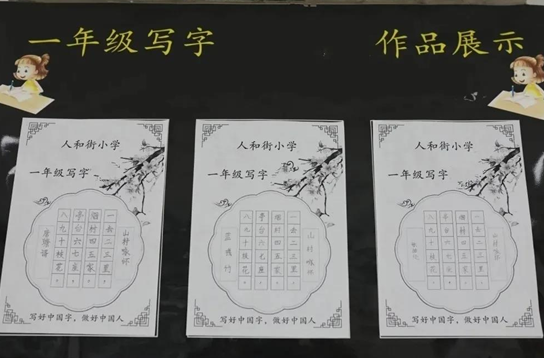 一年级写字
作品展示
人和街小学
一年级写字
山村咏怀
一去二三里，
烟村四五家，
亭台六七座，
八九十枝花，
写好中国字，做好中国人
人和街小学
一年级写字
山村咏怀
一去二三里，
烟村四五家，
亭台六七座，
八九十枝花，
写好中国字，做好中国人
人和街小学
一年级写字
山村咏怀
一去二三里，
烟村四五家，
亭台六七座，
八九十枝花，
写好中国字，做好中国人